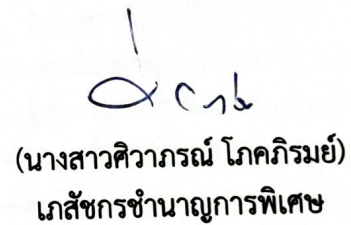 (นางสาวศิวาภรณ์ โภคภิรมย์)
เภสัชกรชำนาญการพิเศษ